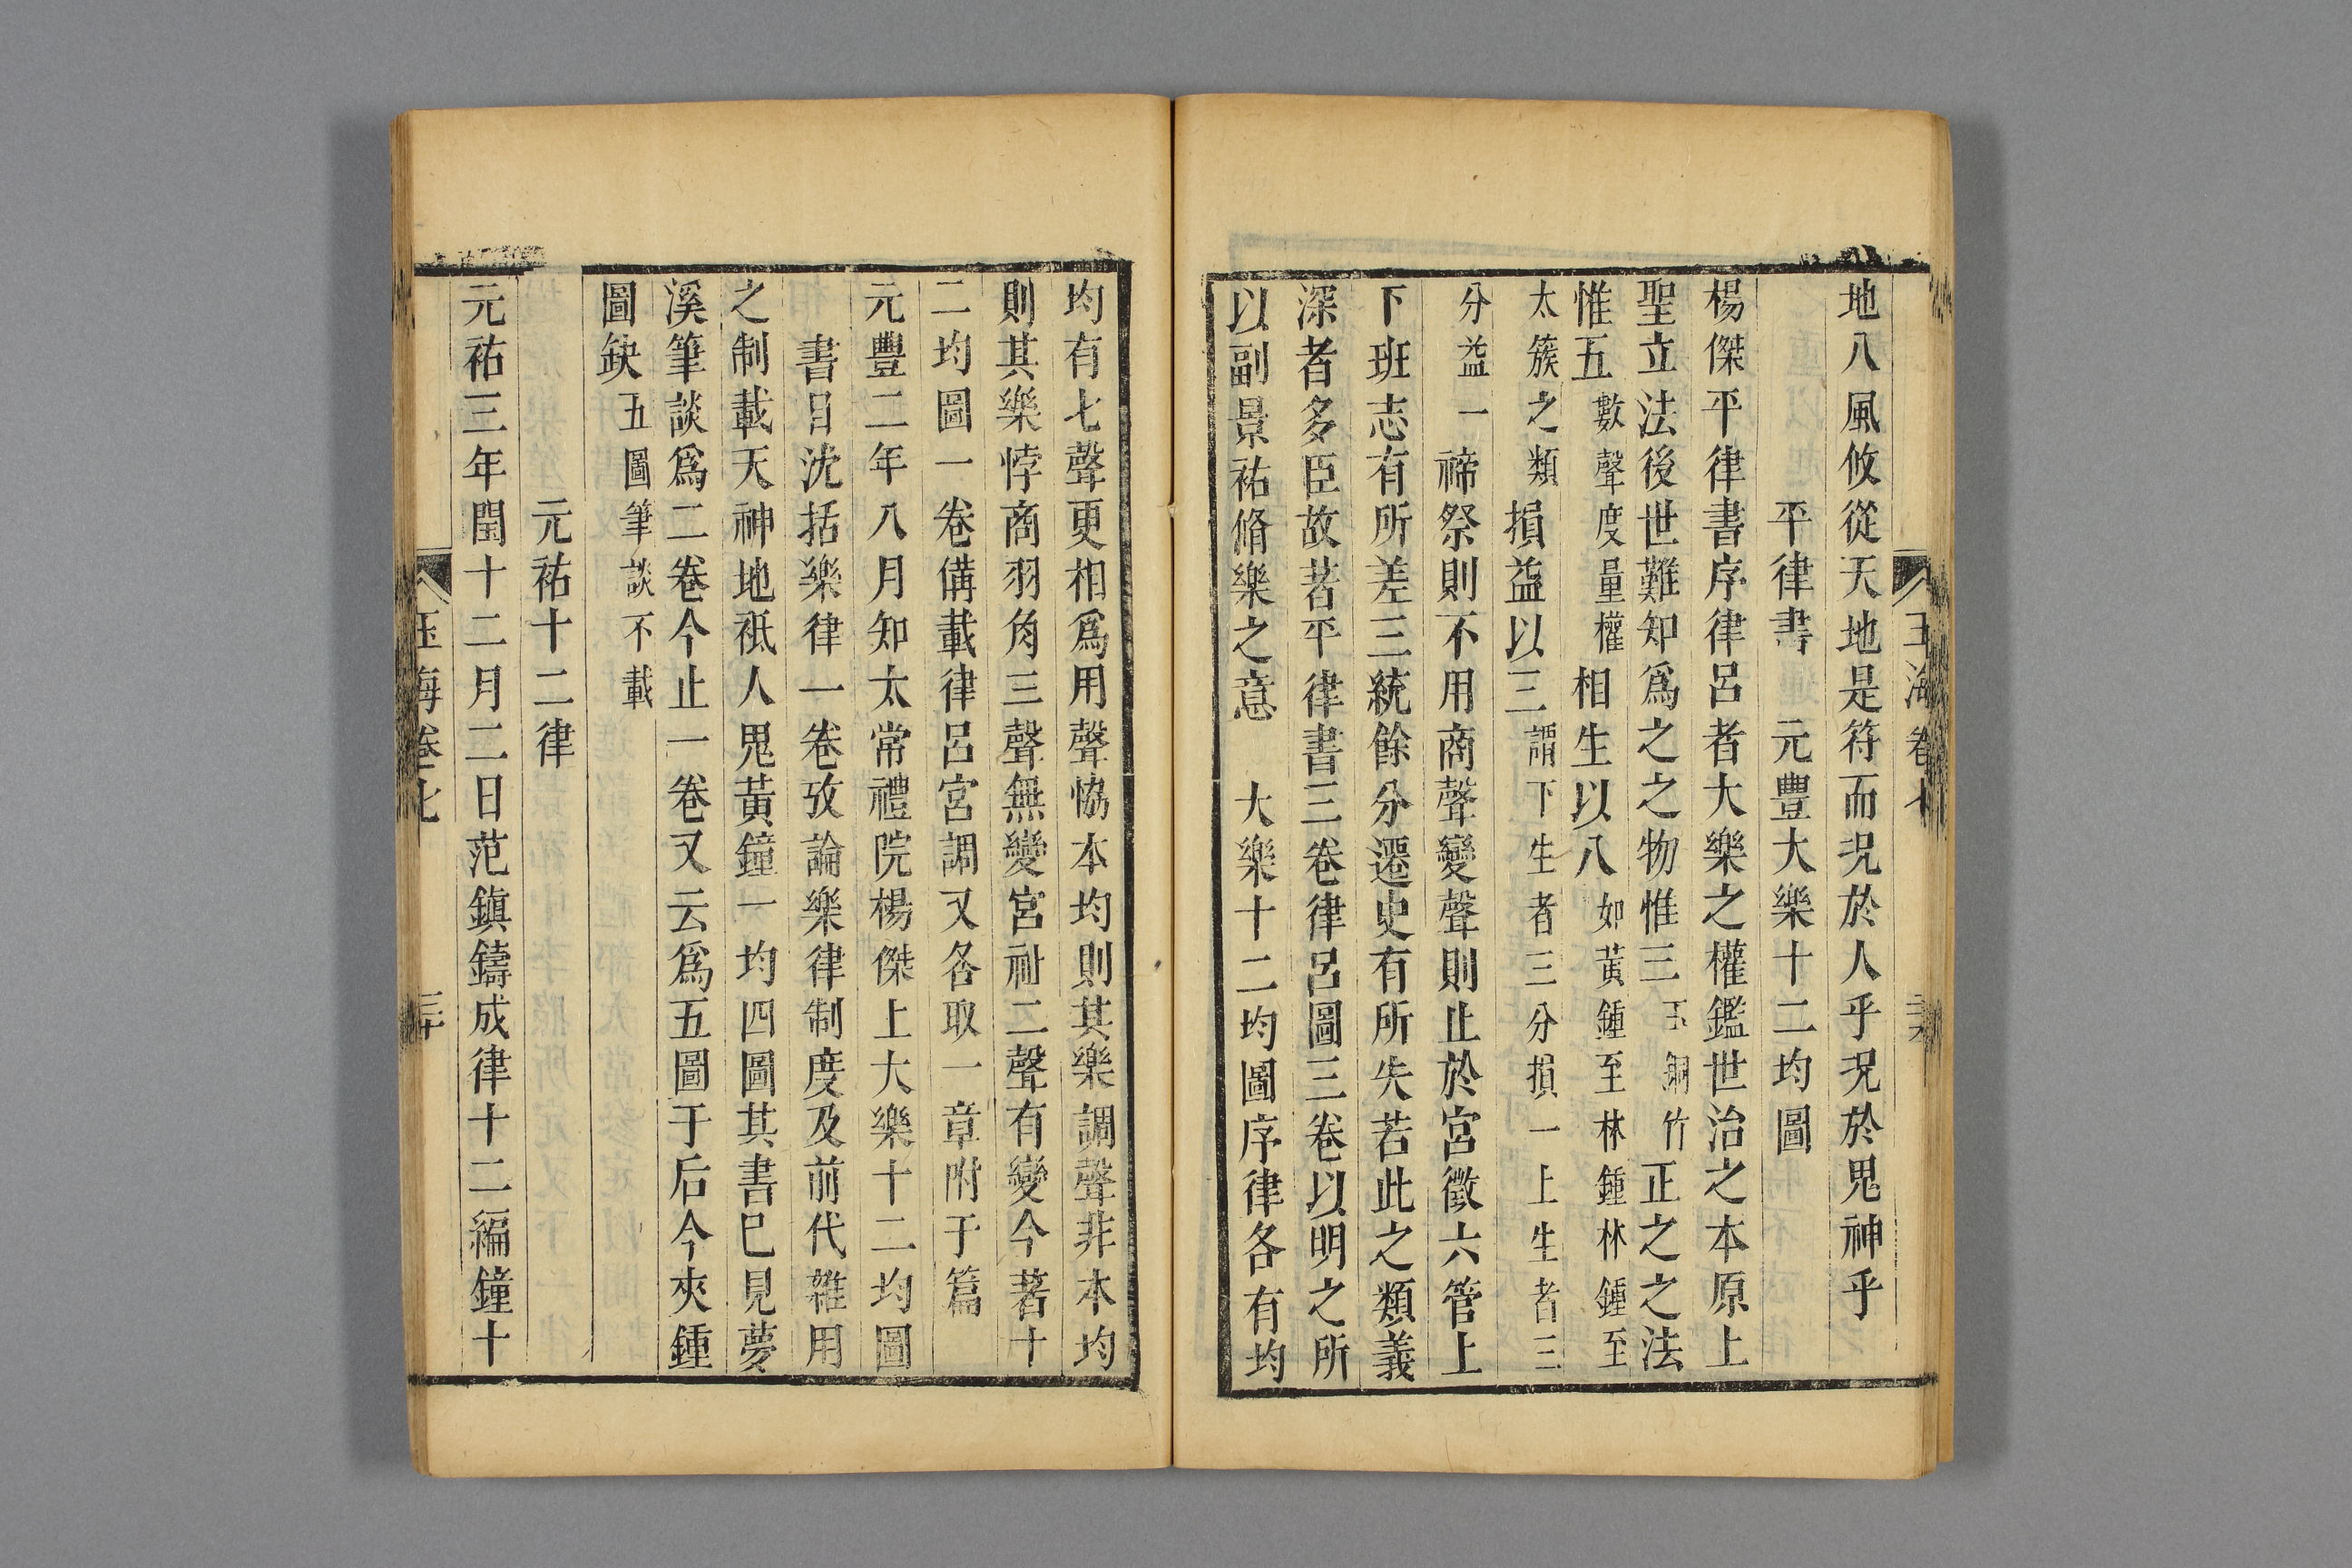 地八風攸從天地是符而況於人乎況於鬼神乎
平律書 元豐大樂十二均圖
楊傑平律書序律呂者大樂之權鑑世治之本原上
聖立法後世難知爲之之物惟三玉銅竹正之之法
惟五數聲度量權相生以八如黃鍾至林鍾林鍾至
太簇之類損益以三謂下生者三分損一上生者三
分益一禘祭則不用商聲變聲則止於宮徵六管上
下班志有所差三統餘分遷史有所失若此之類義
深者多臣故著平律書三卷律呂圖三卷以明之所
以副景祐脩樂之意 大樂十二均圖序律各有均
均有七聲更相爲用聲恊本均則其樂調聲非本均
則其樂悖商羽角三聲無變宮祉二聲有變今著十
二均圖一卷備載律呂宮調又各取一章附于篇
元豐二年八月知太常禮院楊傑上大樂十二均圖
書目沈括樂律一卷攷論樂律制度及前代雜用
之制載天神地祇人鬼黃鐘一均四圖其書巳見夢
溪筆談爲二卷今止一卷又云爲五圖于后今夾鍾
圖缺五圖筆談不載
元祐十二律
元祐三年閏十二月二日范鎮鑄成律十二編鐘十
玉海卷七